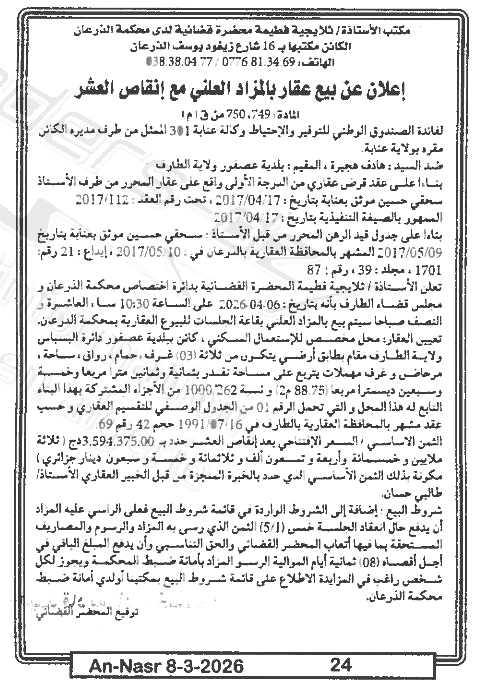 مكتب الأستاذة/ ثلايجية فطيمة محضرة قضائية لدى محكمة الذرعان
الكائن مكتبها بـ 16 شارع زيغود يوسف الذرعان
الهاتف: 0776.81.34.69 / 038.38.04.77
إعلان عن بيع عقار بالمزاد العلني مع إنقاص العشر
المادة: 749، 750 من ق إ م إ
لفائدة الصندوق الوطني للتوفير والإحتياط وكالة عنابة 301 الممثل من طرف مديره الكائن
مقره بولاية عنابة.
ضد السيد: هادف هجيرة، المقيم: بلدية عصفور ولاية الطارف
بناءا على عقد قرض عقاري من الدرجة الأولى واقع على عقار المحرر من طرف الأستاذ
سحقي حسين موثق بعنابة بتاريخ: 2017/04/17، تحت رقم العقد: 2017/112
الممهور بالصيغة التنفيذية بتاريخ: 2017/04/17
بناءا على جدول قيد الرهن المحرر من قبل الأستاذ: سحقي حسين موثق بعنابة بتاريخ
2017/05/09 المشهر بالمحافظة العقارية بالذرعان في: 2017/05/10، إيداع: 21 رقم:
1701، مجلد: 39، رقم: 87
تعلن الأستاذة/ ثلايجية فطيمة المحضرة القضائية بدائرة اختصاص محكمة الذرعان و
مجلس قضاء الطارف بأنه بتاريخ: 06-04-2026 على الساعة 10:30 سا العاشرة و
النصف صباحا سيتم بيع بالمزاد العلني بقاعة الجلسات للبيوع العقارية بمحكمة الذرعان.
تعيين العقار: محل مخصص للإستعمال السكني، كائن ببلدية عصفور دائرة البسباس
ولاية الطارف مقام بطابق أرضي يتكون من ثلاثة (03) غرف، حمام، رواق، ساحة،
مرحاض و غرف مهملات يتربع على مساحة تقدر بثمانية وثمانين مترا مربعا وخمسة
وسبعين ديسمترا مربعا (88.75 م2) و نسبة 1000/262 من الأجزاء المشتركة بهذا البناء
التابع له هذا المحل و التي تحمل الرقم 01 من الجدول الوصفي للتقسيم العقاري و حسب
عقد مشهر بالمحافظة العقارية بالطارف في 1991/07/16 حجم 42 رقم 69.
الثمن الاساسي/ السعر الإفتتاحي بعد إنقاص العشر حدد بـ 3.594.375.00دج ( ثلاثة
ملايين و خمسمائة وأربعة و تسعون ألف و ثلاثمائة و خمسة و سبعون دينار جزائري )
مكونة بذلك الثمن الأساسي الذي حدد بالخبرة المنجزة من قبل الخبير العقاري الأستاذ/
طالبي حسان.
شروط البيع: إضافة إلى الشروط الواردة في قائمة شروط البيع فعلى الراسي عليه المزاد
أن يدفع حال انعقاد الجلسة خمس (5/1) الثمن الذي رسى به المزاد والرسوم والمصاريف
المستحقة بما فيها أتعاب المحضر القضائي والحق التناسبي وأن يدفع المبلغ الباقي في
أجل أقصاه (08) ثمانية أيام الموالية الرسو المزاد بأمانة ضبط المحكمة ويجوز لكل
شخص راغب في المزايدة الاطلاع على قائمة شروط البيع بمكتبنا أولدى أمانة ضبط
محكمة الذرعان.
توقيع المحضر القضائي
An-Nasr 8-3-2026
24